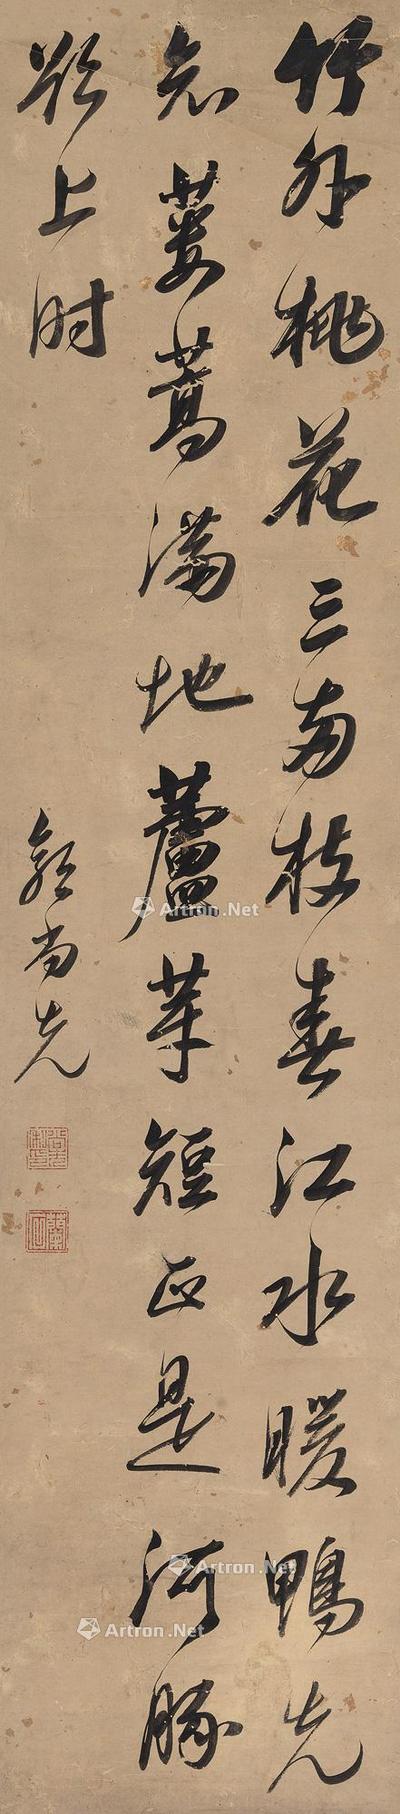 竹外桃花三兩枝春江水暖鴨先
知蔞蒿滿地蘆芽短正是河豚
欲上时
郭尚先
蘭石
Artron.Net
Artron.Net
Artron.Net